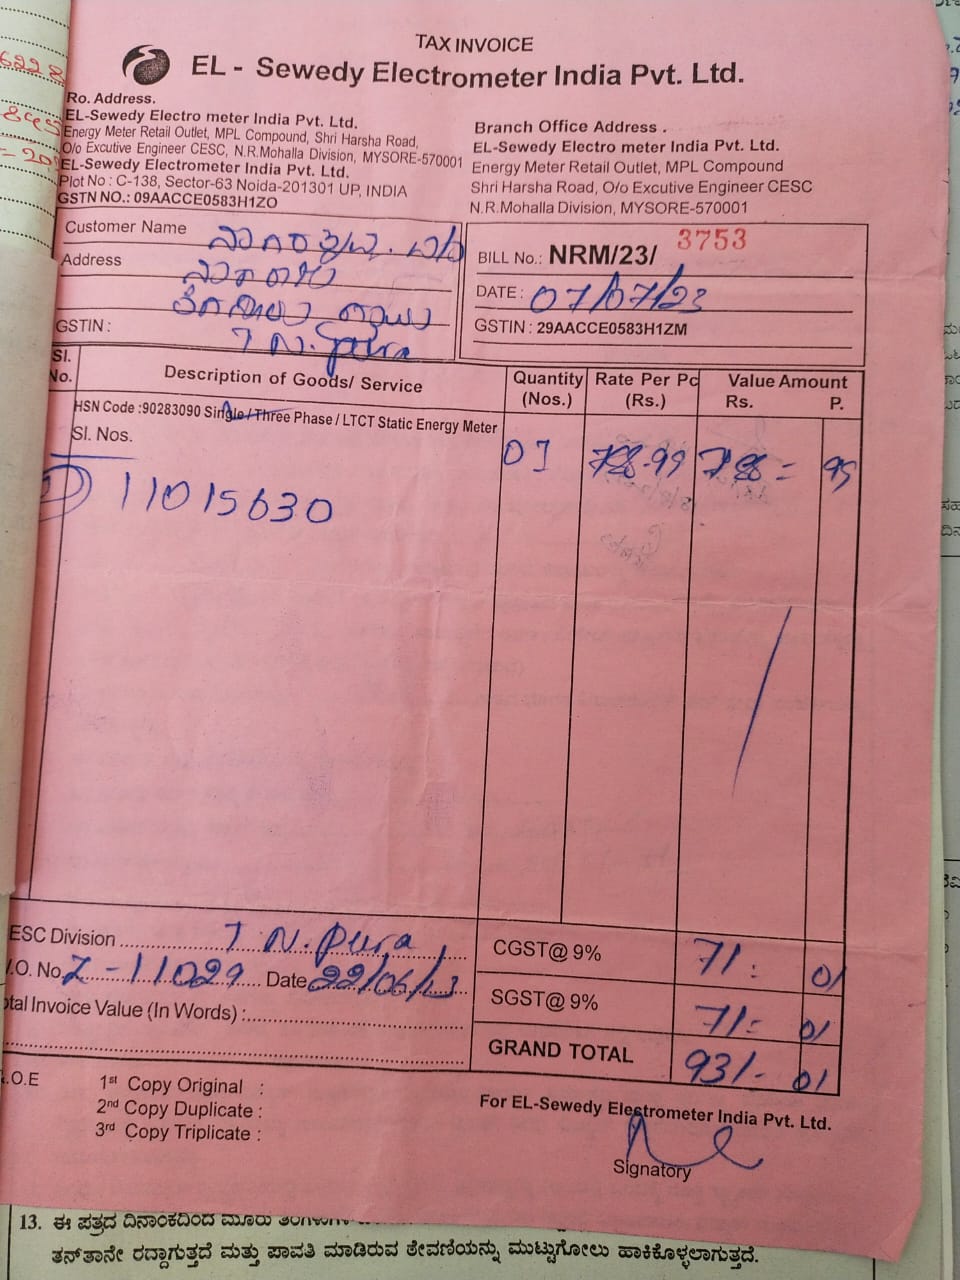 TAX INVOICE
EL - Sewedy Electrometer India Pvt. Ltd.
Ro. Address.
EL-Sewedy Electro meter India Pvt. Ltd.
Energy Meter Retail Outlet, MPL Compound, Shri Harsha Road,
O/o Excutive Engineer CESC, N.R.Mohalla Division, MYSORE-570001
EL-Sewedy Electrometer India Pvt. Ltd.
Plot No : C-138, Sector-63 Noida-201301 UP, INDIA
GSTN NO.: 09AACCE0583H1ZO
Branch Office Address .
EL-Sewedy Electro meter India Pvt. Ltd.
Energy Meter Retail Outlet, MPL Compound
Shri Harsha Road, O/o Excutive Engineer CESC
N.R.Mohalla Division, MYSORE-570001
Customer Name
Address
GSTIN : T N. Pura
BILL No.: NRM/23/ 3753
DATE : 07/07/23
GSTIN : 29AACCE0583H1ZM
Sl. No. Description of Goods/ Service Quantity (Nos.) Rate Per Pc (Rs.) Value Amount Rs. P.
HSN Code :90283090 Single / Three Phase / LTCT Static Energy Meter
Sl. Nos. 01 788-99 788= 99
1) 11015630
ESC Division T N. Pura
.O. No. Z-11029 Date 22/06/23
tal Invoice Value (In Words) :
CGST@ 9% 71: 01
SGST@ 9% 71= 01
GRAND TOTAL 931- 01
.O.E
1st Copy Original :
2nd Copy Duplicate :
3rd Copy Triplicate :
For EL-Sewedy Electrometer India Pvt. Ltd.
Signatory
13. ಈ ಪತ್ರದ ದಿನಾಂಕದಿಂದ ಮೂರು
ತನ್‌ತಾನೇ ರದ್ದಾಗುತ್ತದೆ ಮತ್ತು ಪಾವತಿ ಮಾಡಿರುವ ಠೇವಣಿಯನ್ನು ಮುಟ್ಟುಗೋಲು ಹಾಕಿಕೊಳ್ಳಲಾಗುತ್ತದೆ.